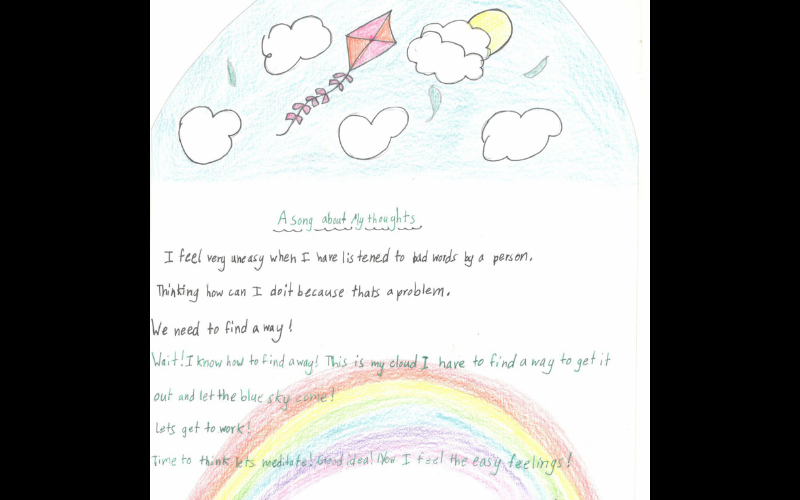 A song about My thoughts
I feel very uneasy when I have listened to bad words by a person.
Thinking how can I do it because thats a problem.
We need to find a way!
Wait! I know how to find a way! This is my cloud I have to find a way to get it
out and let the blue sky come!
Lets get to work!
Time to think lets meditate! Good idea! Now I feel the easy feelings!